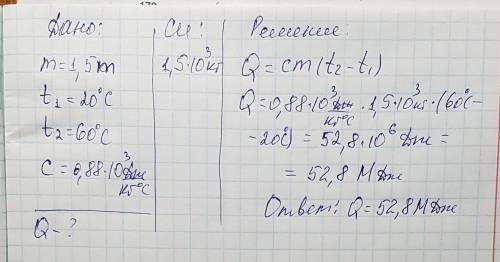 Дано:
m = 1,5 т
t₁ = 20°C
t₂ = 60°C
c = 0,88·10³ Дж/кг°C
Q - ?
Си:
1,5·10³ кг
Решение:
Q = cm (t₂ - t₁)
Q = 0,88·10³ Дж/кг°C · 1,5·10³ кг · (60°C -
- 20°C) = 52,8·10⁶ Дж =
= 52,8 МДж
Ответ: Q = 52,8 МДж